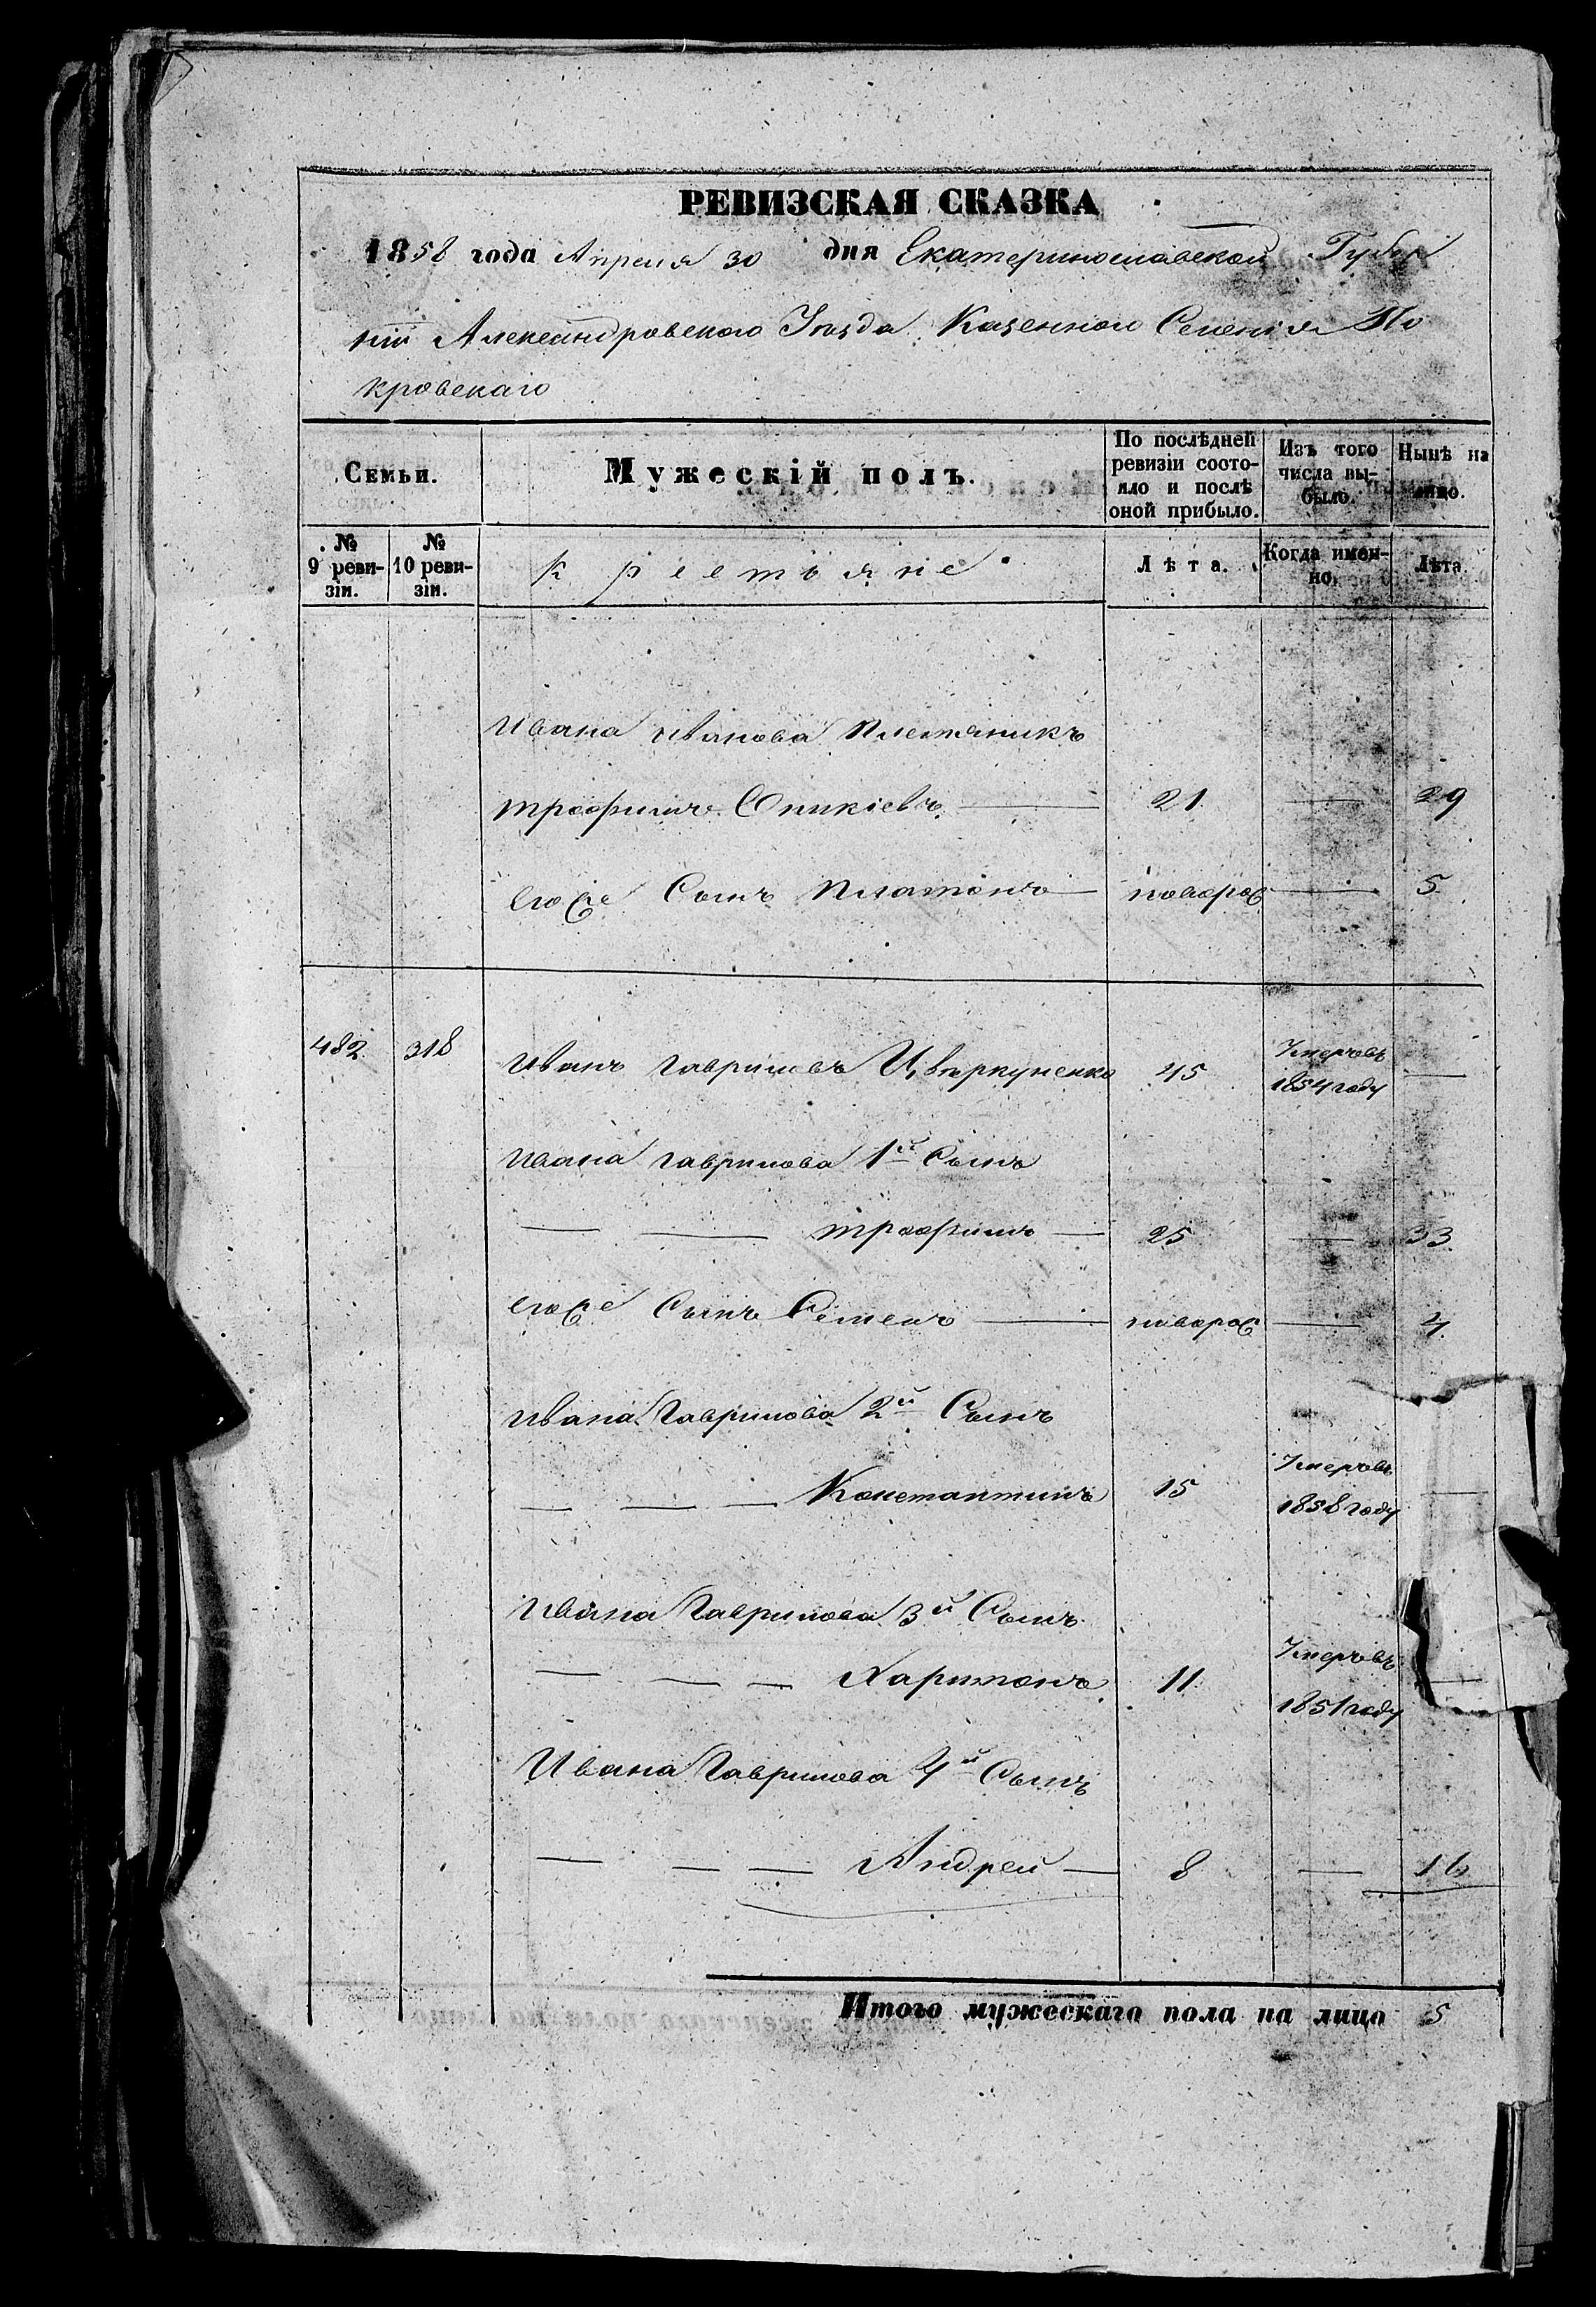 РЕВИЗСКАЯ СКАЗКА
1858 года Апреля 30 дня Екатеринославской Губер
нiи Александровского Уѣзда Казенного Селенiя По
кровскаго
Семьи. Мужескiй полъ. По послѣдней ревизiи состояло и послѣ оной прибыло. Изъ того числа выбыло. Нынѣ на лицо.
№ 9 ревизiи. № 10 ревизiи. Крестьяне Лѣта. Когда именно. Лѣта.
Ивана Иванова Племяникъ
Трофимъ Оникiевъ — 21 — 29
егоже Сынъ Платонъ — новорож — 5
482 318 Иванъ Гавриловъ Цвѣркуненко 45 Умеръ въ 1854 году —
Ивана Гаврилова 1й Сынъ
— — Трофимъ — 25 — 33
егоже Сынъ Семенъ — новорож — 4
Ивана Гаврилова 2й Сынъ
— — — Константинъ 15 Умеръ въ 1858 году —
Ивана Гаврилова 3й Сынъ
— — — Харитонъ 11 Умеръ въ 1851 году —
Ивана Гаврилова 4й Сынъ
— — — Андрей — 8 — 16
Итого мужескаго пола на лицо 5